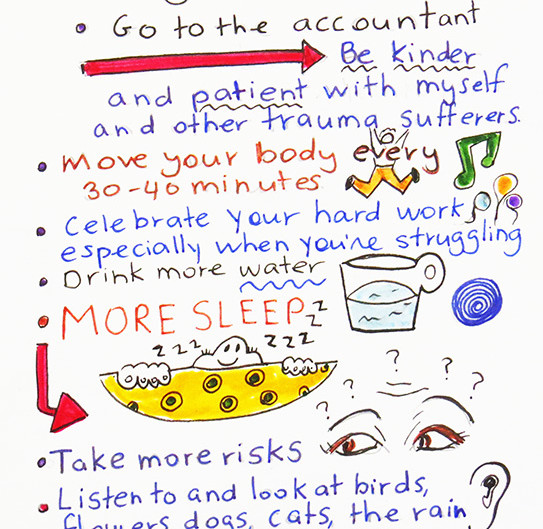 • Go to the accountant
Be kinder
and patient with myself
and other trauma sufferers.
• Move your body every
30-40 minutes
• Celebrate your hard work,
especially when you're struggling
• Drink more water
• MORE SLEEP zzz
z z z z z z
? ? ? ?
• Take more risks
• Listen to and look at birds,
flowers, dogs, cats, the rain